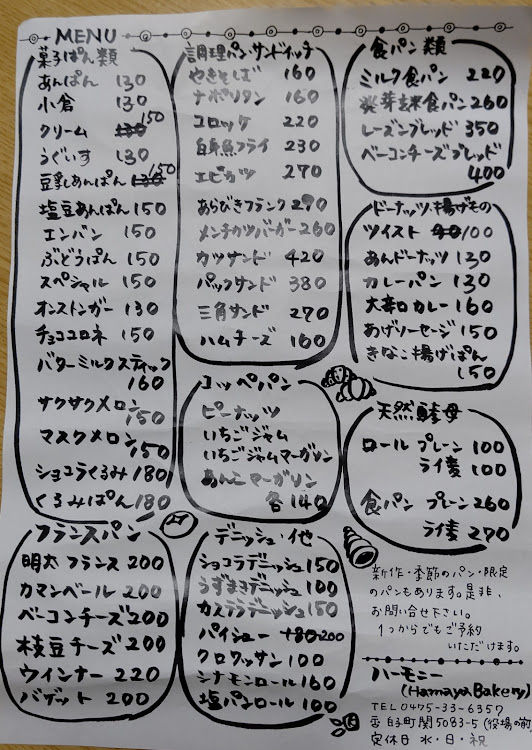 MENU
菓子ぱん類
あんぱん 130
小倉 130
クリーム 150
うぐいす 130
豆乳あんぱん 150
塩豆あんぱん 150
エンバン 150
ぶどうぱん 150
スペシャル 150
オンストンガー 130
チョココロネ 150
バターミルクスティック
160
サクサクメロン
150
マスクメロン
150
ショコラくるみ 180
くるみぱん 180
調理パン・サンドイッチ
やきそば 160
ナポリタン 160
コロッケ 220
白身魚フライ 230
エビカツ 270
あらびきフランク 290
メンチカツバーガー 260
カツサンド 420
パックサンド 380
三角サンド 270
ハムチーズ 160
食パン類
ミルク食パン 220
発芽玄米食パン 260
レーズンブレッド 350
ベーコンチーズブレッド
400
ドーナッツ・揚げもの
ツイスト 100
あんドーナッツ 130
カレーパン 130
大辛口カレー 160
あげソーセージ 150
きなこ揚げぱん
150
コッペパン
ピーナッツ
いちごジャム
いちごジャムマーガリン
あんこマーガリン
各140
天然酵母
ロール プレーン 100
ライ麦 100
食パン プレーン 260
ライ麦 270
フランスパン
明太フランス 200
カマンベール 200
ベーコンチーズ 200
枝豆チーズ 200
ウインナー 220
バゲット 200
デニッシュ・他
ショコラデニッシュ 150
うずまきデニッシュ 100
カスタラデニッシュ 150
パイシュー 180 200
クロワッサン 100
シナモンロール 160
塩パンロール 100
新作・季節のパン・限定
のパンもあります。是非、
お問い合せ下さい。
1つからでもご予約
いただけます。
ハーモニー
(Hamaya Bakery)
TEL 0475-33-6357
白子町関5083-5 (役場の前)
定休日 水・日・祝